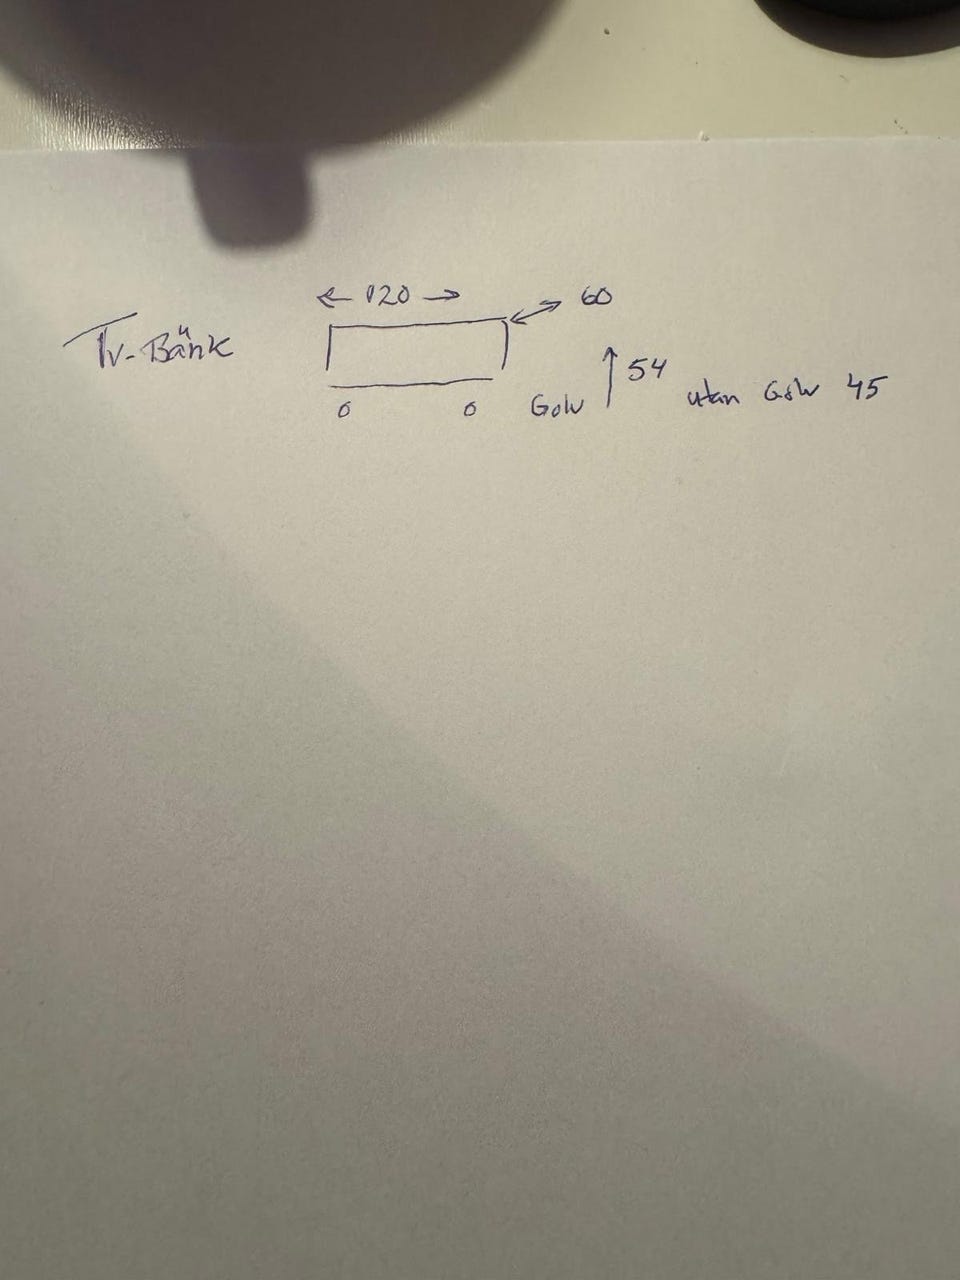 ← 120 → 60
Tv-Bänk
Golv ↑ 54 utan Golv 45